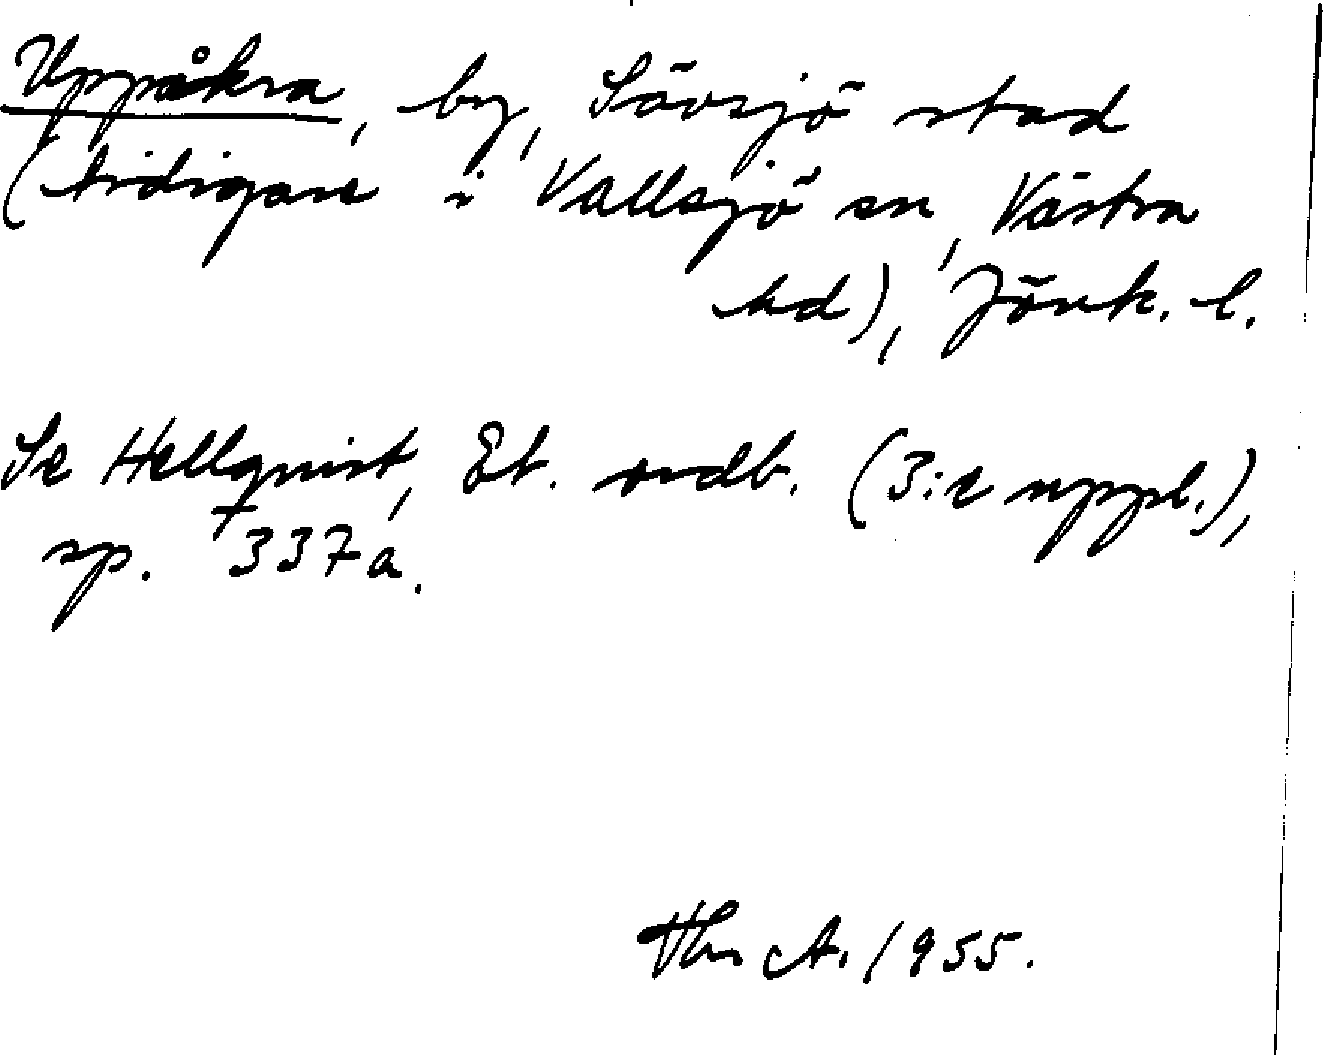 Uppåkra, by, Sävsjö stad
(tidigare i Vallsjö sn, Västra
hd), Jönk. l.
Se Hellquist, Et. ordb. (3:e uppl.),
sp. 337 a.
A. 1955.